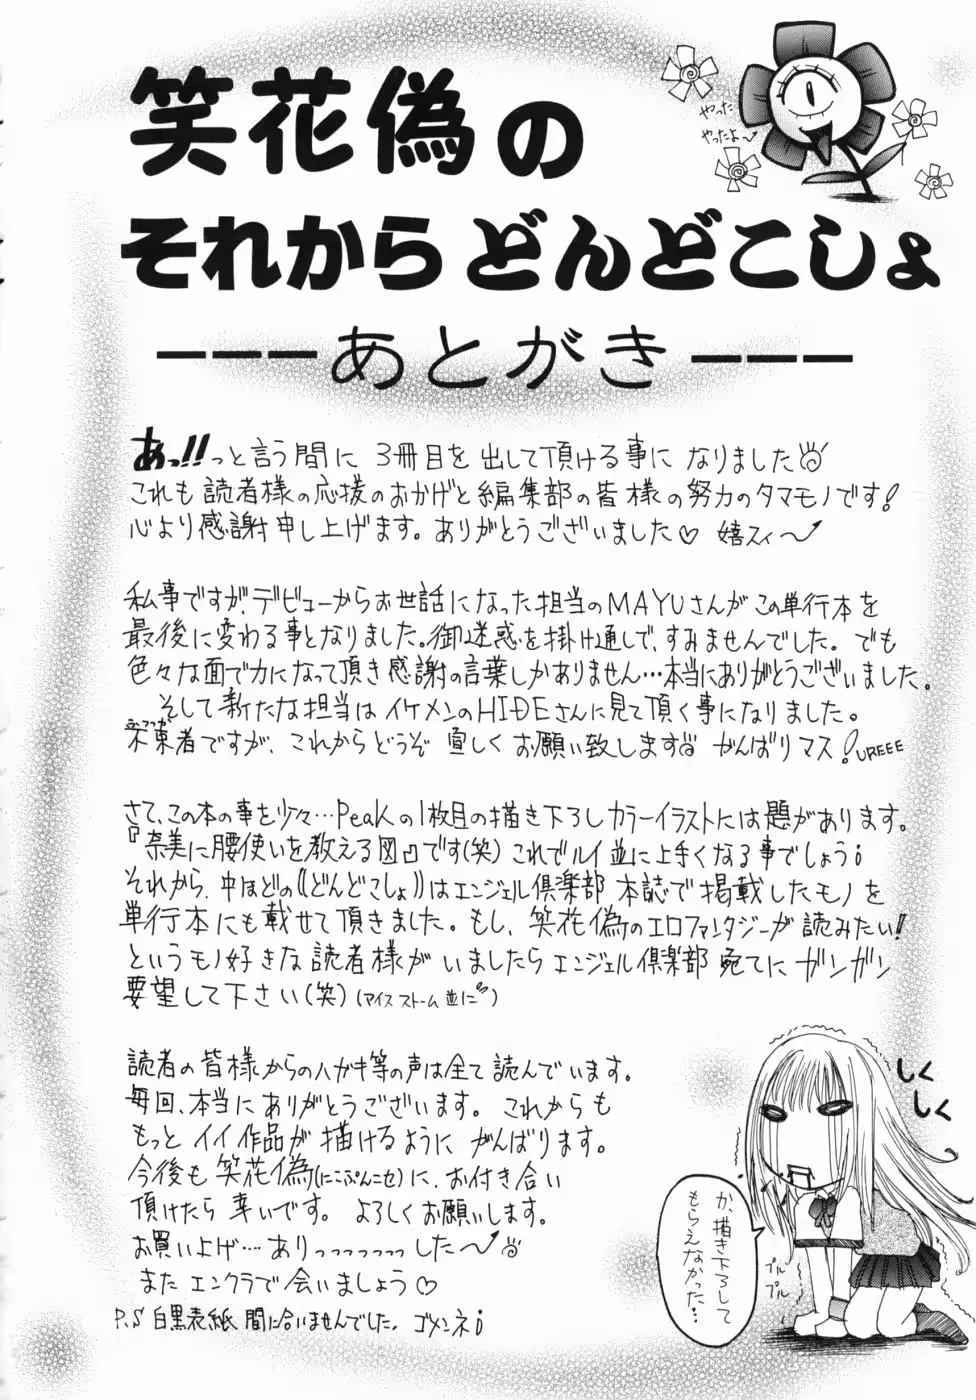 笑花偽の
それからどんどこしょ
やった
やったよ〜
---あとがき---
あっ!!っと言う間に 3冊目を出して頂ける事に なりました
これも読者様の応援のおかげと編集部の皆様の努力のタマモノです!
心より感謝申し上げます。ありがとうございました♡ 嬉スィ〜
私事ですが、デビューからお世話になった担当のMAYUさんがこの単行本を
最後に変わる事となりました。御迷惑を掛け通しで、すみませんでした。でも
色々な面で力になって頂き感謝の言葉しかありません…本当にありがとうございました。
そして新たな担当はイケメンのHIDEさんに見て頂く事になりました。
不束者ですが、これからどうぞ宜しくお願い致します がんばりマス!UREEE
さて、この本の事を少々…Peakの1枚目の描き下ろしカラーイラストには題があります。
『奈美に腰使いを教える図』です(笑)これでルイ並に上手くなる事でしょう!
それから、中ほどの((どんどこしょ))はエンジェル倶楽部 本誌で掲載したモノを
単行本にも載せて頂きました。もし、笑花偽のエロファンタジーが読みたい!!
というモノ好きな読者様がいましたらエンジェル倶楽部 宛てにガンガン
要望して下さい(笑)(アイス ストーム並に)
読者の皆様からのハガキ等の声は全て読んでいます。
毎回、本当にありがとうございます。これからも
もっとイイ作品が描けるようにがんばります。
今後も笑花偽(にこぷんニセ)に、お付き合い
頂けたら幸いです。よろしくお願いします。
お買い上げ…ありっっっっっっした〜
またエンクラで会いましょう♡
P.S 白黒表紙間に合いませんでした。ゴメンネ!
しく
しく
か、描き下ろして
もらえなかった…
プル
プル